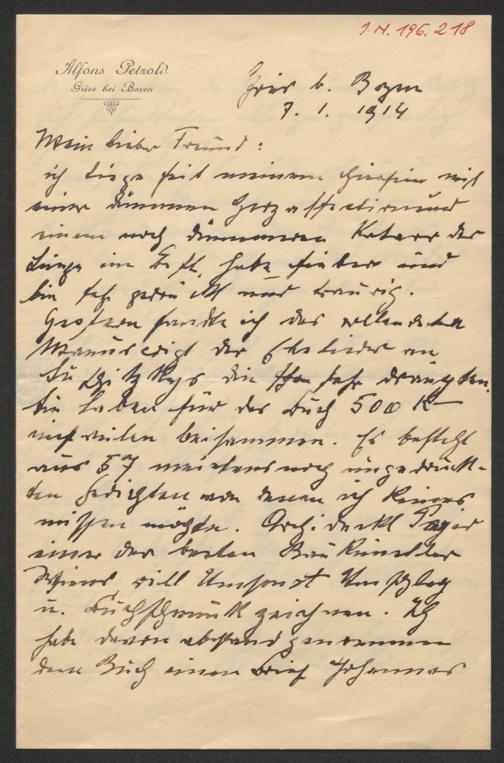 J.N. 196.218
Alfons Petzold
Gries bei Bozen
Gries b. Bozen
7. 1. 1914
Mein lieber Freund:
ich liege seit meinem Hiersein mit
einer dummen Herzaffection und
einem noch dümmeren Katarr der
Lunge im Bett, habe Fieber und
bin sehr gedrückt und traurig.
Gestern sandte ich das vollendete
Manuscript der Ehelieder an
die sehr drängten.
Sie haben für das Buch 500 K
beisammen. Es besteht
aus 57 meistens noch ungedruck-
ten Gedichten von denen ich keines
missen möchte. Architekt
einer der besten Baukünstler
Wiens will Umsonst Umschlag
u. Buchschmuck zeichnen. Ich
habe davon abstand genommen
dem Buch einen Brief Johannes